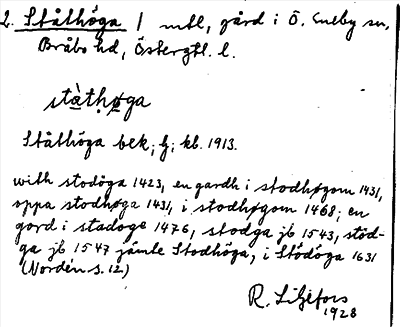 2. Ståthöga / mtl, gård i Ö. Eneby sn,
Bråbo hd, Östergtl. l.
stàthøga
Ståthöga bek; G; kb. 1913.
with stodöga 1423, en gardh i stodhøgom 1431,
oppa stodhøga 1431, i stodhøgom 1468; en
gord i stadoge 1476, stodga jb 1543, stod-
ga jb 1547 jämte Stodhöga, i Stödöga 1631
(Nordén s. 12)
R. Liljefors
1928